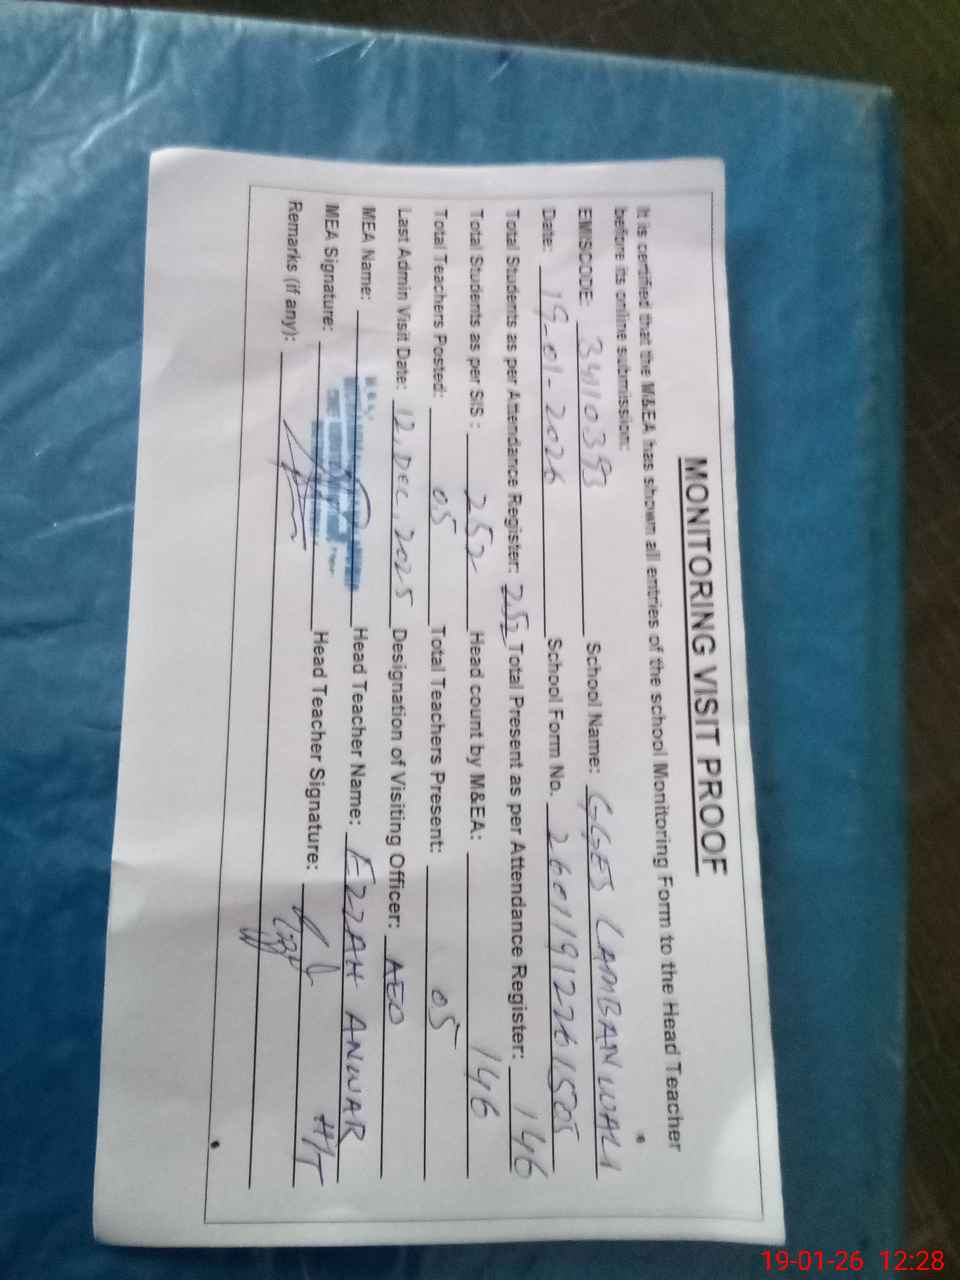 MONITORING VISIT PROOF
It is certified that the M&EA has shown all entries of the school Monitoring Form to the Head Teacher
before its online submission:
EMISCODE: 34110393 School Name: GGES LAMBANWALI
Date: 19-01-2026 School Form No. 26011912261505
Total Students as per Attendance Register: 252 Total Present as per Attendance Register: 146
Total Students as per SIS: 252 Head count by M&EA: 146
Total Teachers Posted: 05 Total Teachers Present: 05
Last Admin Visit Date: 12, DEC, 2025 Designation of Visiting Officer: AEO
MEA Name: Head Teacher Name: EZZAH ANWAR
MEA Signature: Head Teacher Signature: H/T
Remarks (if any):
19-01-26 12:28